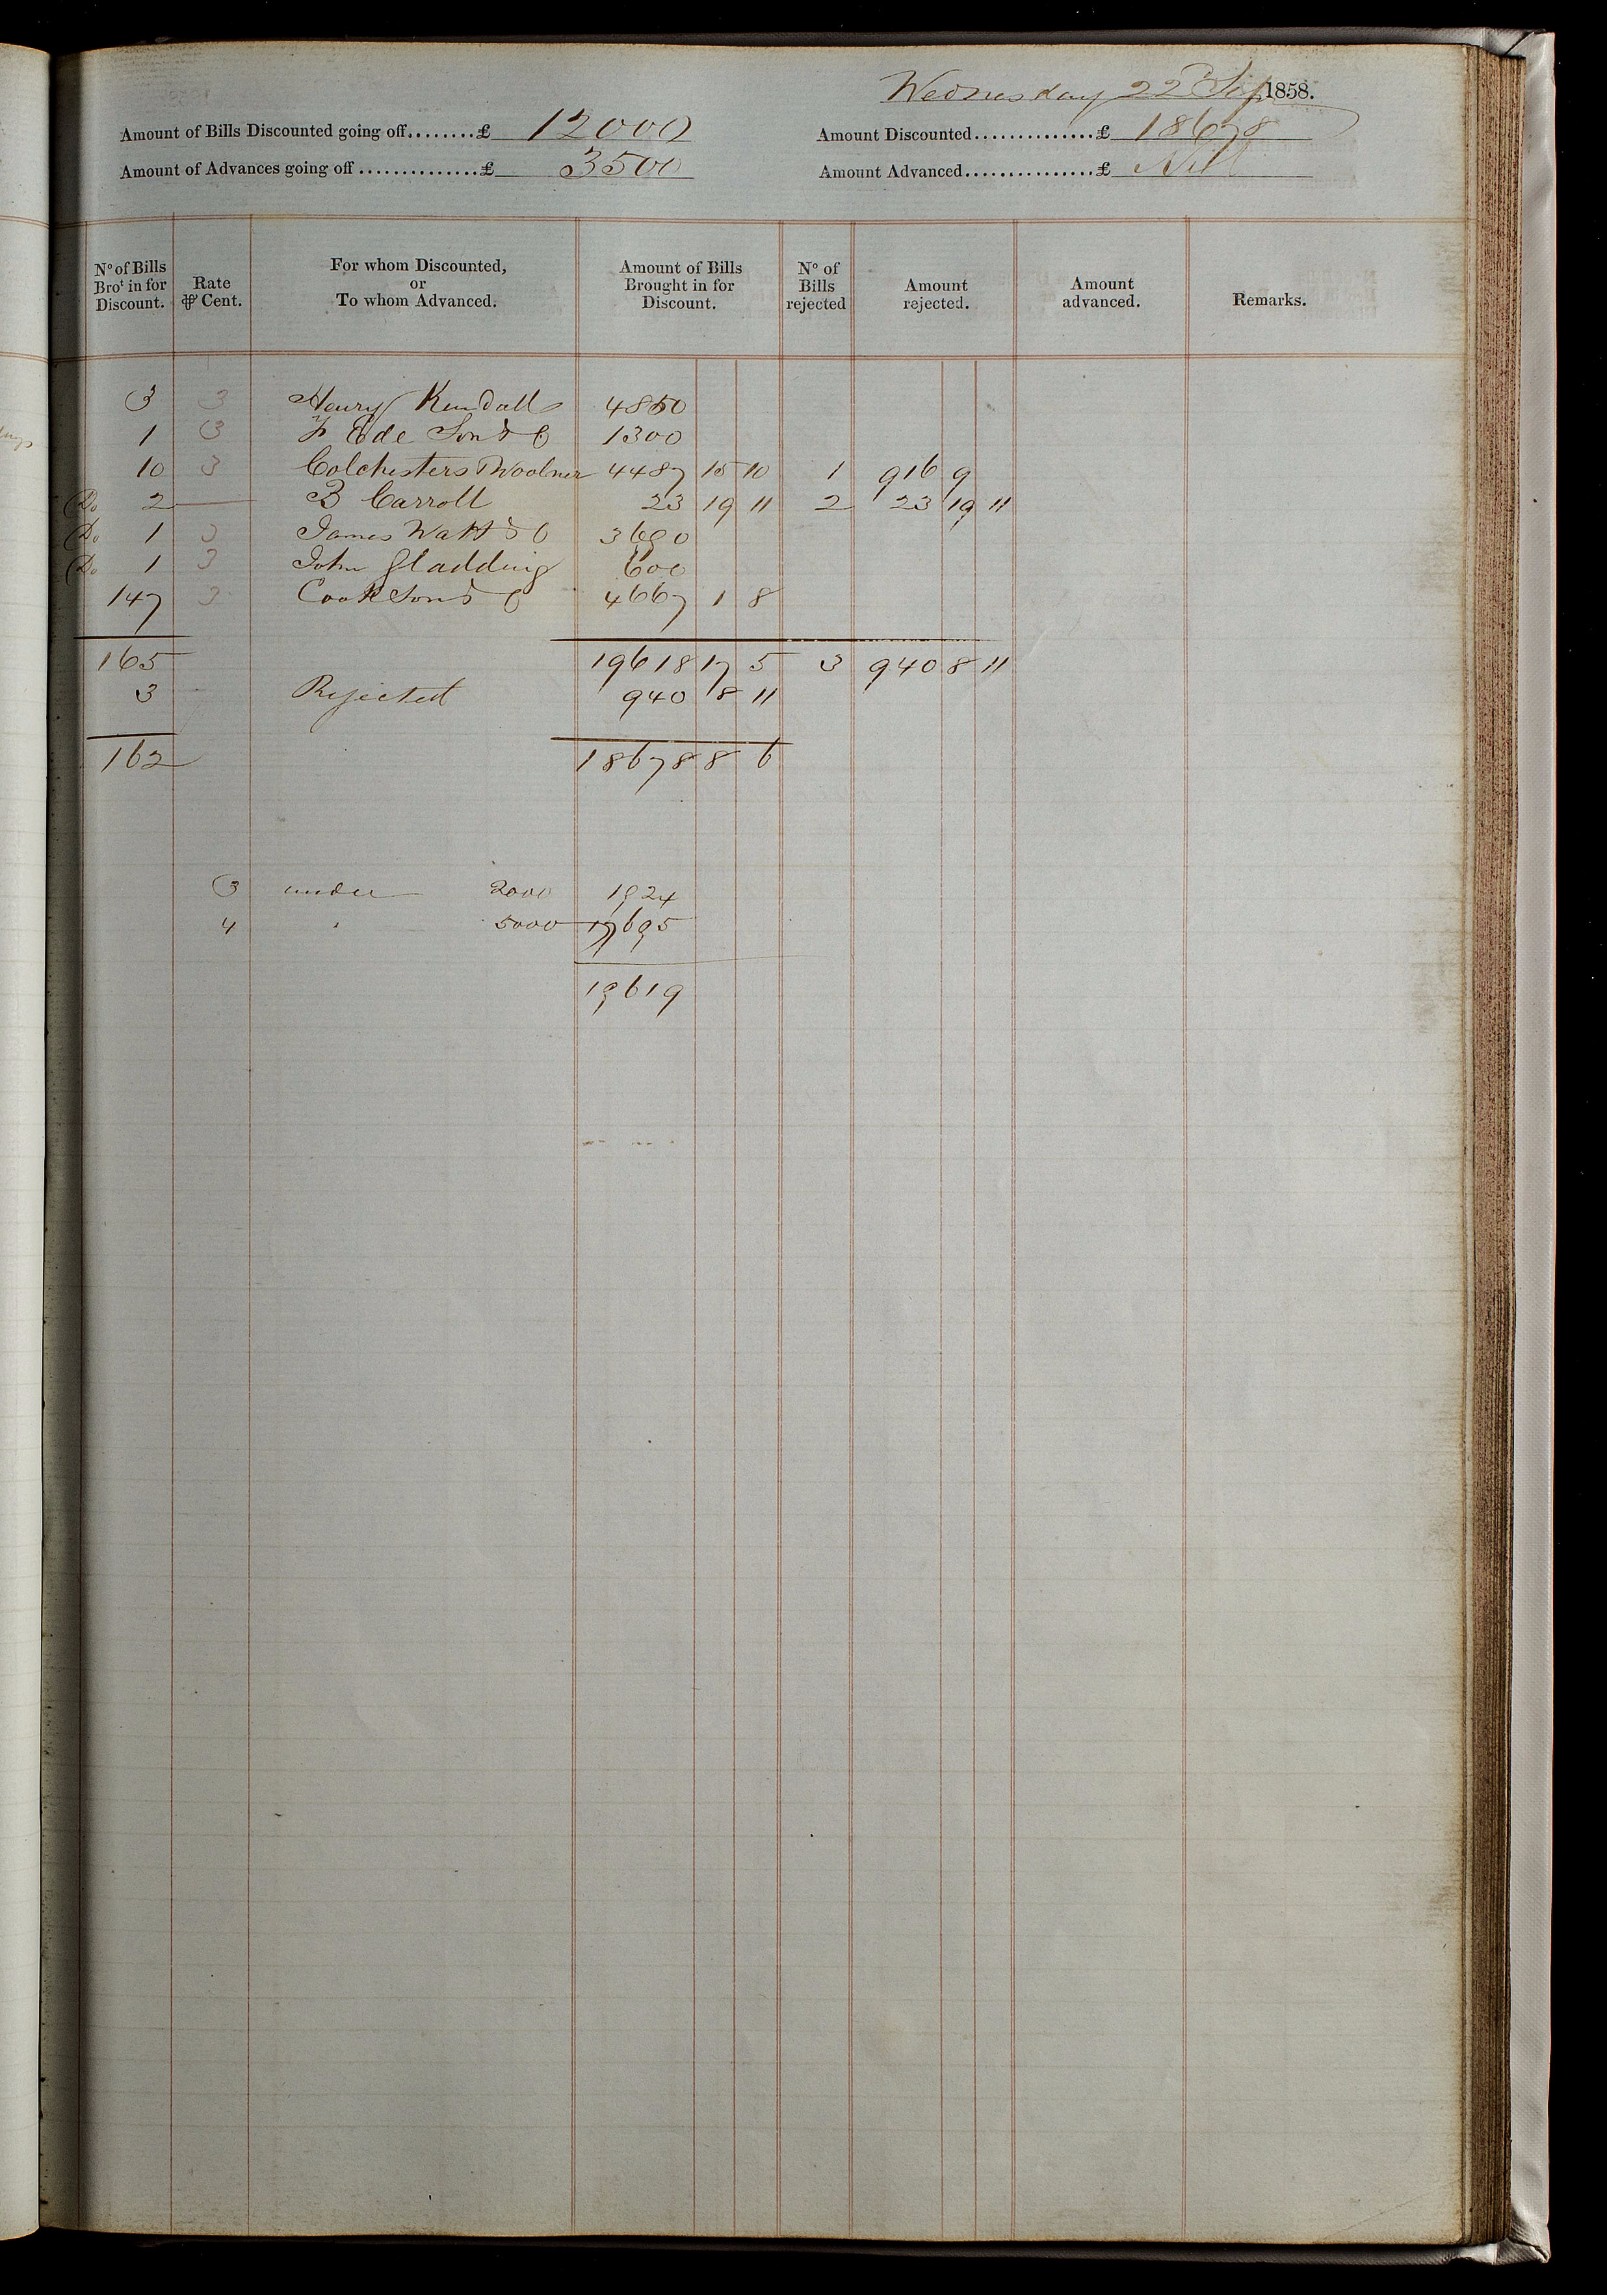 Wednesday 22d Sep 1858.
Amount of Bills Discounted going off........£ 12000 Amount Discounted...............£ 18678
Amount of Advances going off...............£ 3500 Amount Advanced................£ Nil
No of Bills Brot in for Discount. Rate ⅌ Cent. For whom Discounted, or To whom Advanced. Amount of Bills Brought in for Discount. No of Bills rejected Amount rejected. Amount advanced. Remarks.
3 3 Henry Kendall 4850
1 3 F Ede Son & C 1300
10 3 Colchesters & Woolner 4487 15 10 1 916 9
Do 2 — B Carroll 23 19 11 2 23 19 11
Do 1 3 James Watt & C 3690
Do 1 3 John Gladding 600
147 3 Cook Son & C 4667 1 8
165 19618 17 5 3 940 8 11
3 Rejected 940 8 11
162 18678 8 6
3 under 2000 1924
4 " 5000 17695
19619